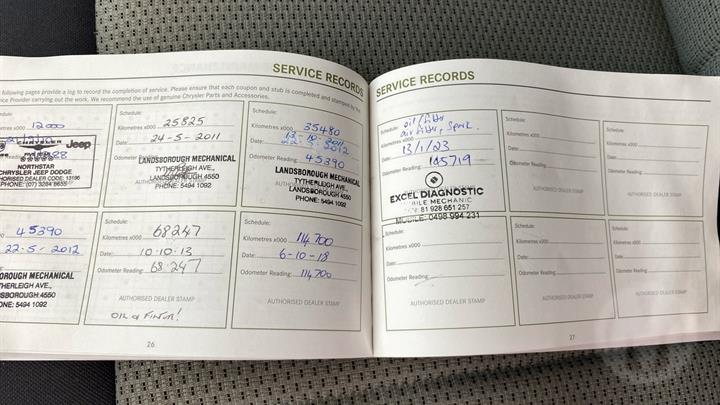 SERVICE RECORDS
following pages provide a log to record the completion of service. Please ensure that each coupon and stub is completed and stamped by the
Service Provider carrying out the work. We recommend the use of genuine Chrysler Parts and Accessories.
x000 12000
Jeep
NORTHSTAR
CHRYSLER JEEP DODGE
PHONE: (07) 3284 8655
Schedule:
Kilometres x000 25825
Date: 24-5-2011
LANDSBOROUGH MECHANICAL
TYTHERLEIGH AVE.,
LANDSBOROUGH 4550
PHONE: 5494 1092
Schedule:
Kilometres x000 35480
Date: 12-10-2011
22-5-2012
Odometer Reading: 45390
LANDSBOROUGH MECHANICAL
TYTHERLEIGH AVE.,
LANDSBOROUGH 4550
PHONE: 5494 1092
x000 45390
22.5.2012
OROUGH MECHANICAL
THERLEIGH AVE.,
SBOROUGH 4550
NE: 5494 1092
Schedule:
Kilometres x000 68247
Date: 10.10.13
Odometer Reading: 68247
AUTHORISED DEALER STAMP
Schedule:
Kilometres x000 114700
Date: 6-10-18
Odometer Reading: 114700
AUTHORISED DEALER STAMP
26
SERVICE RECORDS
Schedule: oil/filter
Kilometres x000 air filter, spark.
Date: 13/1/23
Odometer Reading: 145719
EXCEL DIAGNOSTIC
MOBILE MECHANIC
81 928 651 257
MOBILE: 0498 994 231
Schedule:
Kilometres x000
Date:
Odometer Reading:
AUTHORISED DEALER STAMP
Schedule:
Kilometres x000
Date:
Odometer Reading:
AUTHORISED DEALER STAMP
Schedule:
Kilometres x000
Date:
Odometer Reading:
AUTHORISED DEALER STAMP
Schedule:
Kilometres x000
Date:
Odometer Reading:
AUTHORISED DEALER STAMP
Schedule:
Kilometres x000
Date:
Odometer Reading:
AUTHORISED DEALER STAMP
27